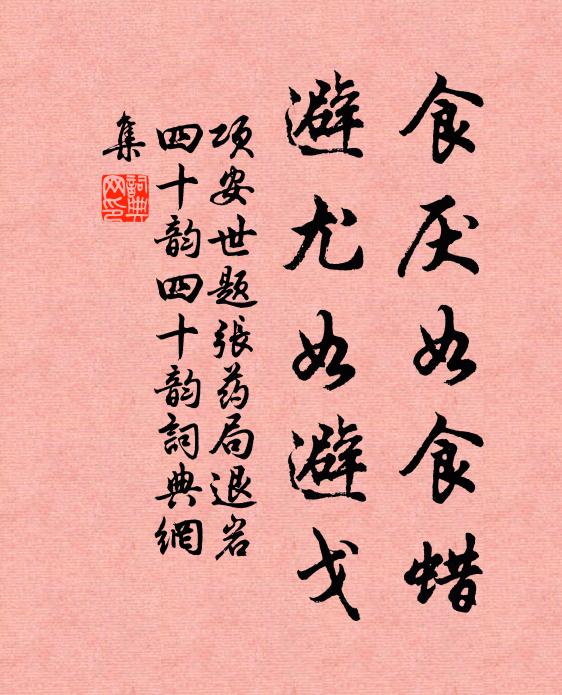 食厌如食蜡
避尤如避戈
项安世题張药局退岩
四十韵四十韵詞典網
集
詞典
网印